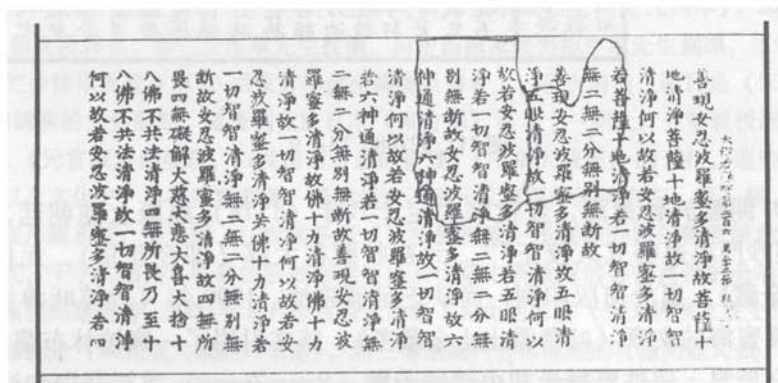 善現安忍波羅蜜多清淨故菩薩十
地清淨菩薩十地清淨故一切智智
清淨何以故若安忍波羅蜜多清淨
若菩薩十地清淨若一切智智清淨
無二無二分無別無斷故
善現安忍波羅蜜多清淨故五眼清
淨五眼清淨故一切智智清淨何以
故若安忍波羅蜜多清淨若五眼清
淨若一切智智清淨無二無二分無
別無斷故安忍波羅蜜多清淨故六
神通清淨六神通清淨故一切智智
清淨何以故若安忍波羅蜜多清淨
若六神通清淨若一切智智清淨無
二無二分無別無斷故善現安忍波
羅蜜多清淨故佛十力清淨佛十力
清淨故一切智智清淨何以故若安
忍波羅蜜多清淨若佛十力清淨若
一切智智清淨無二無二分無別無
斷故安忍波羅蜜多清淨故四無所
畏四無礙解大慈大悲大喜大捨十
八佛不共法清淨四無所畏乃至十
八佛不共法清淨故一切智智清淨
何以故若安忍波羅蜜多清淨若